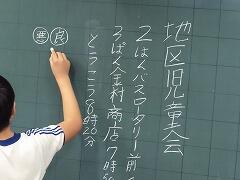 地区児童会
2はんバスロータリー前
3ぱん金村商店7時5
とうこう8時20分
良
悪